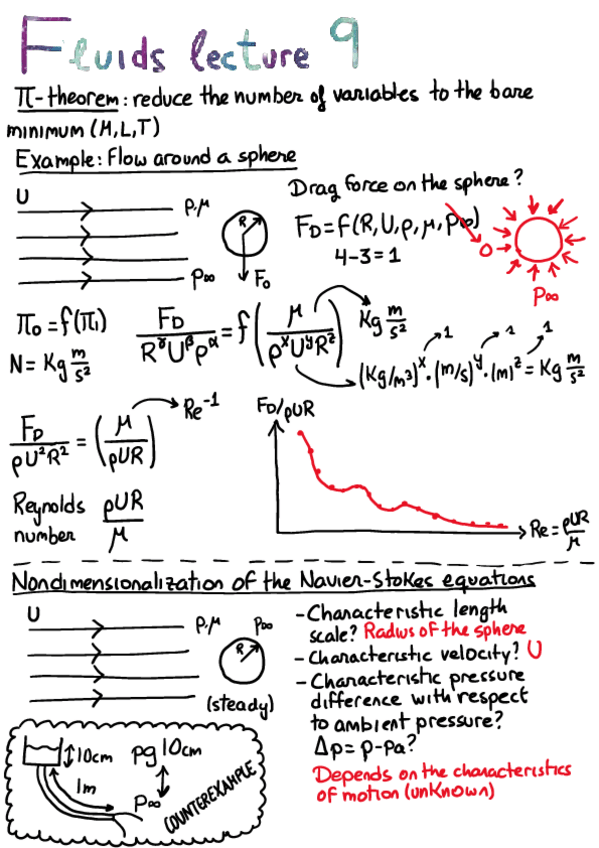 Fluids lecture 9
Π-theorem: reduce the number of variables to the bare
minimum (M,L,T)
Example: Flow around a sphere
U
ρ,μ
R
P∞
F₀
Drag force on the sphere?
F_D = f(R,U,ρ,μ,P∞)
0
4-3=1
P∞
Π₀ = f(Π₁)
N = Kg m/s²
F_D/(R^γ U^β ρ^α) = f(μ/(ρ^x U^y R^z))
Kg m/s²
1 1 1
(Kg/m³)^x · (m/s)^y · (m)^z = Kg m/s²
F_D/(ρU²R²) = (μ/(ρUR))
Re⁻¹
Reynolds number ρUR/μ
F_D/ρUR
Re = ρUR/μ
Nondimensionalization of the Navier-Stokes equations
U
ρ,μ
P∞
R
(steady)
10cm
ρg10cm
1m
P∞
COUNTEREXAMPLE
-Characteristic length
scale? Radius of the sphere
-Characteristic velocity? U
-Characteristic pressure
difference with respect
to ambient pressure?
Δp = p-pa?
Depends on the characteristics
of motion (unknown)